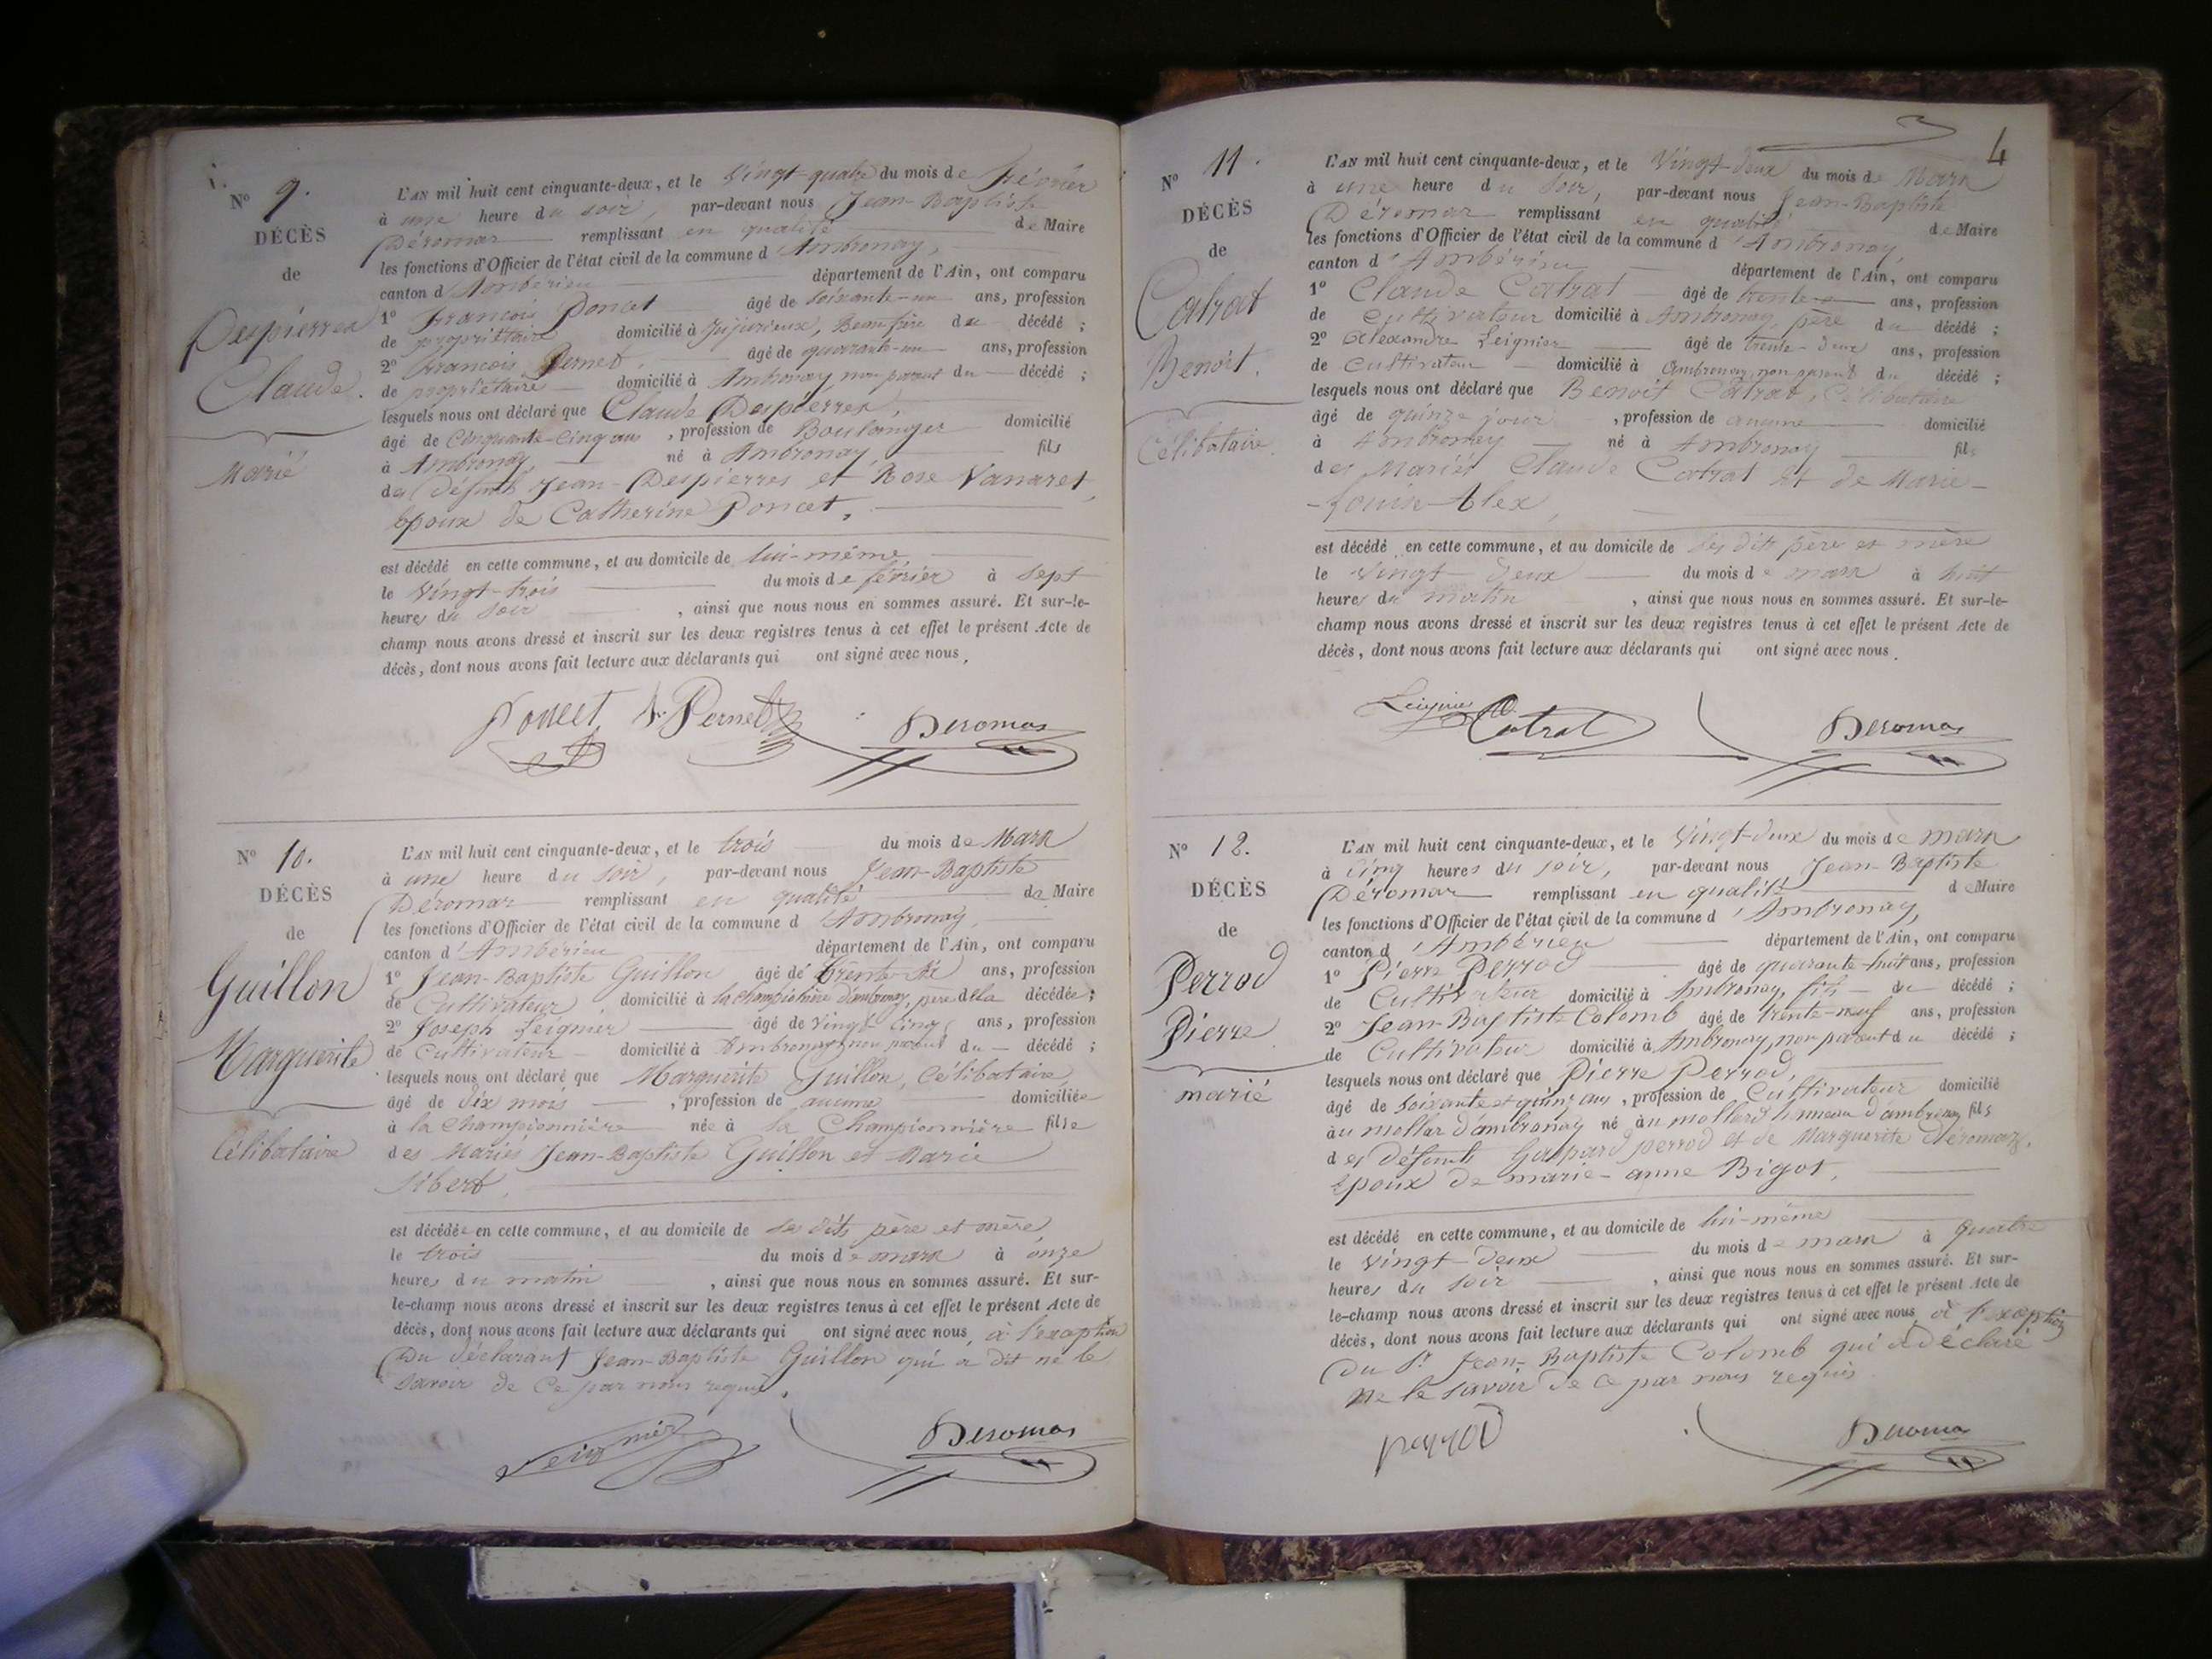 Nº 9.
DÉCÈS
de
Despierres
Claude.
Marié
L'AN mil huit cent cinquante-deux, et le Vingt-quatre du mois de février
à une heure du soir, par-devant nous Jean-Baptiste
Déromas remplissant en qualité de Maire
les fonctions d'Officier de l'état civil de la commune d'Ambronay,
canton d'Ambérieu département de l'Ain, ont comparu
1º François Poncet âgé de soixante-un ans, profession
de propriétaire domicilié à Jujurieux, Beau frère du décédé ;
2º François Pernet, âgé de quarante-un ans, profession
de propriétaire domicilié à Ambronay, non parent du décédé ;
lesquels nous ont déclaré que Claude Despierres,
âgé de Cinquante-Cinq ans, profession de Boulanger domicilié
à Ambronay, né à Ambronay, fils
des défunts Jean-Despierres et Rose Vanaret,
époux de Catherine Poncet,
est décédé en cette commune, et au domicile de lui-même
le Vingt-trois du mois de février à sept
heures du soir, ainsi que nous nous en sommes assuré. Et sur-le-
champ nous avons dressé et inscrit sur les deux registres tenus à cet effet le présent Acte de
décès, dont nous avons fait lecture aux déclarants qui ont signé avec nous,
Poncet fr. Pernet Deromas
Nº 10.
DÉCÈS
de
Guillon
Marguerite
Célibataire
L'AN mil huit cent cinquante-deux, et le trois du mois de Mars
à une heure du soir, par-devant nous Jean-Baptiste
Déromas remplissant en qualité de Maire
les fonctions d'Officier de l'état civil de la commune d'Ambronay,
canton d'Ambérieu département de l'Ain, ont comparu
1º Jean-Baptiste Guillon âgé de trente-six ans, profession
de Cultivateur, domicilié à la championnière d'ambronay, père de la décédée ;
2º Joseph Leignier âgé de vingt cinq ans, profession
de Cultivateur domicilié à Ambronay, non parent du décédé ;
lesquels nous ont déclaré que Marguerite Guillon, Célibataire,
âgé de dix mois, profession de aucune domiciliée
à la Championnière née à la Championnière fille
des Mariés Jean-Baptiste Guillon et Marie
Sibert,
est décédée en cette commune, et au domicile de ses dits père et mère,
le trois du mois de mars à onze
heures du matin, ainsi que nous nous en sommes assuré. Et sur-
le-champ nous avons dressé et inscrit sur les deux registres tenus à cet effet le présent Acte de
décès, dont nous avons fait lecture aux déclarants qui ont signé avec nous, à l'exception
Du déclarant Jean-Baptiste Guillon qui a dit ne le
savoir de ce par nous requis.
Leignier Deromas
4
Nº 11.
DÉCÈS
de
Catrat
Benoit.
Célibataire.
L'AN mil huit cent cinquante-deux, et le Vingt-deux du mois de Mars
à une heure du soir, par-devant nous Jean-Baptiste
Déromas remplissant en qualité de Maire
les fonctions d'Officier de l'état civil de la commune d'Ambronay,
canton d'Ambérieu département de l'Ain, ont comparu
1º Claude Catrat âgé de trente ans, profession
de Cultivateur domicilié à Ambronay, père du décédé ;
2º Alexandre Leignier âgé de trente-deux ans, profession
de Cultivateur domicilié à Ambronay, non parent du décédé ;
lesquels nous ont déclaré que Benoit Catrat, Célibataire
âgé de quinze jours, profession de aucune domicilié
à Ambronay né à Ambronay fils
des Mariés Claude Catrat et de Marie-
-Louise Alex,
est décédé en cette commune, et au domicile de ses dits père et mère
le Vingt-deux du mois de mars à huit
heures du matin, ainsi que nous nous en sommes assuré. Et sur-le-
champ nous avons dressé et inscrit sur les deux registres tenus à cet effet le présent Acte de
décès, dont nous avons fait lecture aux déclarants qui ont signé avec nous.
Leignier Catrat Deromas
Nº 12.
DÉCÈS
de
Perrod
Pierre
marié
L'AN mil huit cent cinquante-deux, et le Vingt-deux du mois de mars
à Cinq heures du soir, par-devant nous Jean-Baptiste
Déromas remplissant en qualité de Maire
les fonctions d'Officier de l'état civil de la commune d'Ambronay,
canton d'Ambérieu département de l'Ain, ont comparu
1º Pierre Perrod âgé de quarante-huit ans, profession
de Cultivateur domicilié à Ambronay, fils du décédé ;
2º Jean-Baptiste Colomb âgé de trente-neuf ans, profession
de Cultivateur domicilié à Ambronay, non parent du décédé ;
lesquels nous ont déclaré que Pierre Perrod,
âgé de soixante et quinze ans, profession de Cultivateur domicilié
au mollar d'ambronay né au mollard hameau d'ambronay fils
des défunts Gaspard perrod et de Marguerite Déromas,
époux de marie-anne Bigot,
est décédé en cette commune, et au domicile de lui-même
le vingt deux du mois de mars à quatre
heures du soir, ainsi que nous nous en sommes assuré. Et sur-
le-champ nous avons dressé et inscrit sur les deux registres tenus à cet effet le présent Acte de
décès, dont nous avons fait lecture aux déclarants qui ont signé avec nous à l'exception
Du Sr. Jean-Baptiste Colomb qui a déclaré
ne le savoir de ce par nous requis
perrod Deromas